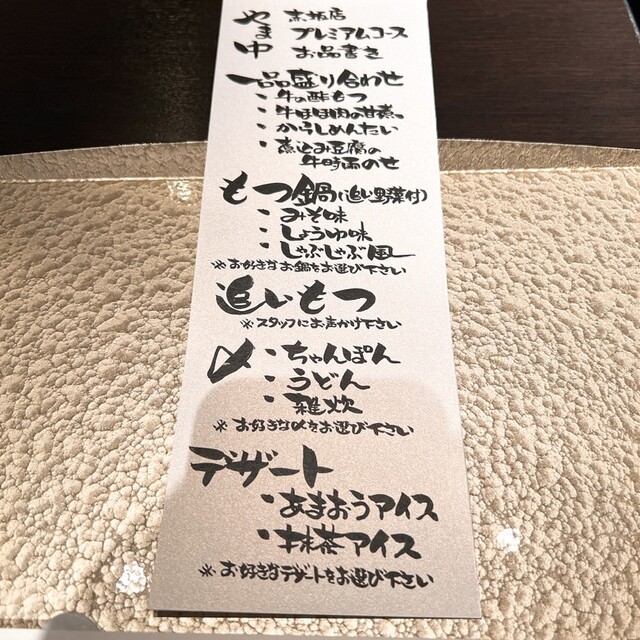 やま中
赤坂店
プレミアムコース
お品書き
一品盛り合わせ
・牛の酢もつ
・牛ほほ肉の甘煮
・からしめんたい
・煮込み豆腐の
牛時雨のせ
もつ鍋(追い野菜付)
・みそ味
・しょうゆ味
・しゃぶしゃぶ風
※お好きなお鍋をお選び下さい
追いもつ
※スタッフにお声かけ下さい
〆・ちゃんぽん
・うどん
・雑炊
※お好きな〆をお選び下さい
デザート
・あまおうアイス
・抹茶アイス
※お好きなデザートをお選び下さい